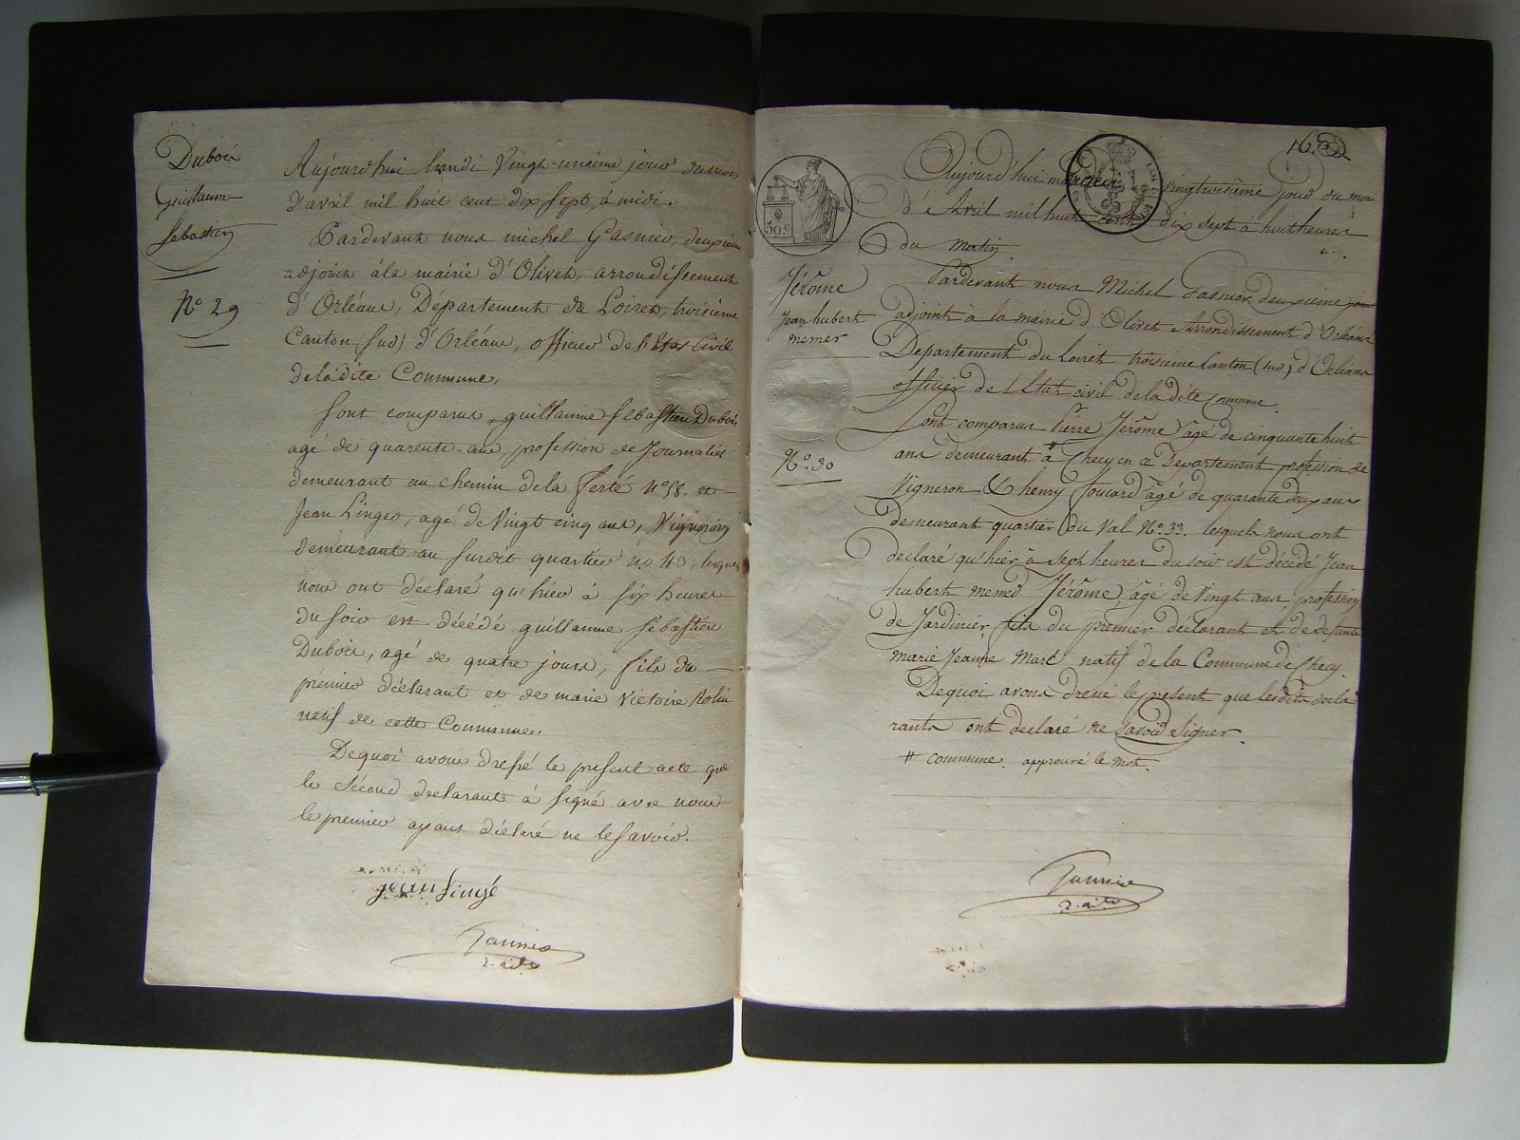 Dubois
Guillaume
Sebastien
N° 29
Aujourd'hui lundi Vingt-unieme jour du mois
d'avril mil huit cent dix sept, à midi.
Pardevant nous michel Gasnier, deuxieme
adjoint à la mairie d'Olivet, arrondissement
d'Orléans, Département du Loiret, troisieme
Canton (sud) d'Orléans, officier de l'état Civil
de la dite Commune,
Sont comparus, guillaume Sebastien Dubois
agé de quarente ans profession de Journalier
demeurant au chemin de la ferté n° 58. et
Jean Linger, agé de Vingt cinq ans, Vigneron
demeurant au surdit quartier n° 40, lesquels
nous ont déclaré qu'hier à six heures
du soir est décédé guillaume Sébastien
Dubois, agé de quatre jours, fils du
premier déclarant et de marie Victoire Rolin
natif de cette Commune.
De quoi avons dressé le present acte que
le Sécond déclarant à signé avec nous
le premier ayant déclaré ne le savoir.
jean Lingé
Gasnier
2. adt
16.
Aujourd'hui mercredi vingtroisième jour du mois
d'Avril mil huit cent dix sept à huit heures
du matin
30c
Jérôme
Jean hubert
memer
N° 30
Pardevant nous Michel Gasnier deuxieme
adjoint à la mairie d'Olivet Arrondissement d'Orléans
Departement du Loiret troisieme Canton (sud) d'Orléans
officier de l'Etat civil de la dite Commune.
Sont comparus Pierre Jérôme agé de cinquante huit
ans demeurant à # Checy en ce Departement profession de
Vigneron & henry foucard agé de quarante deux ans
demeurant quartier du Val N° 33. lesquels nous ont
declaré qu'hier à sept heures du soir est décédé Jean
hubert memer Jérôme agé de vingt ans, profession
de Jardinier fils du premier déclarant et de defunte
marie Jeanne Marc natif de la Commune de Checy.
De quoi avons dressé le present que les dits decla
rants ont declaré ne savoir signer.
# commune. approuvé le mot.
Gasnier
2. adt